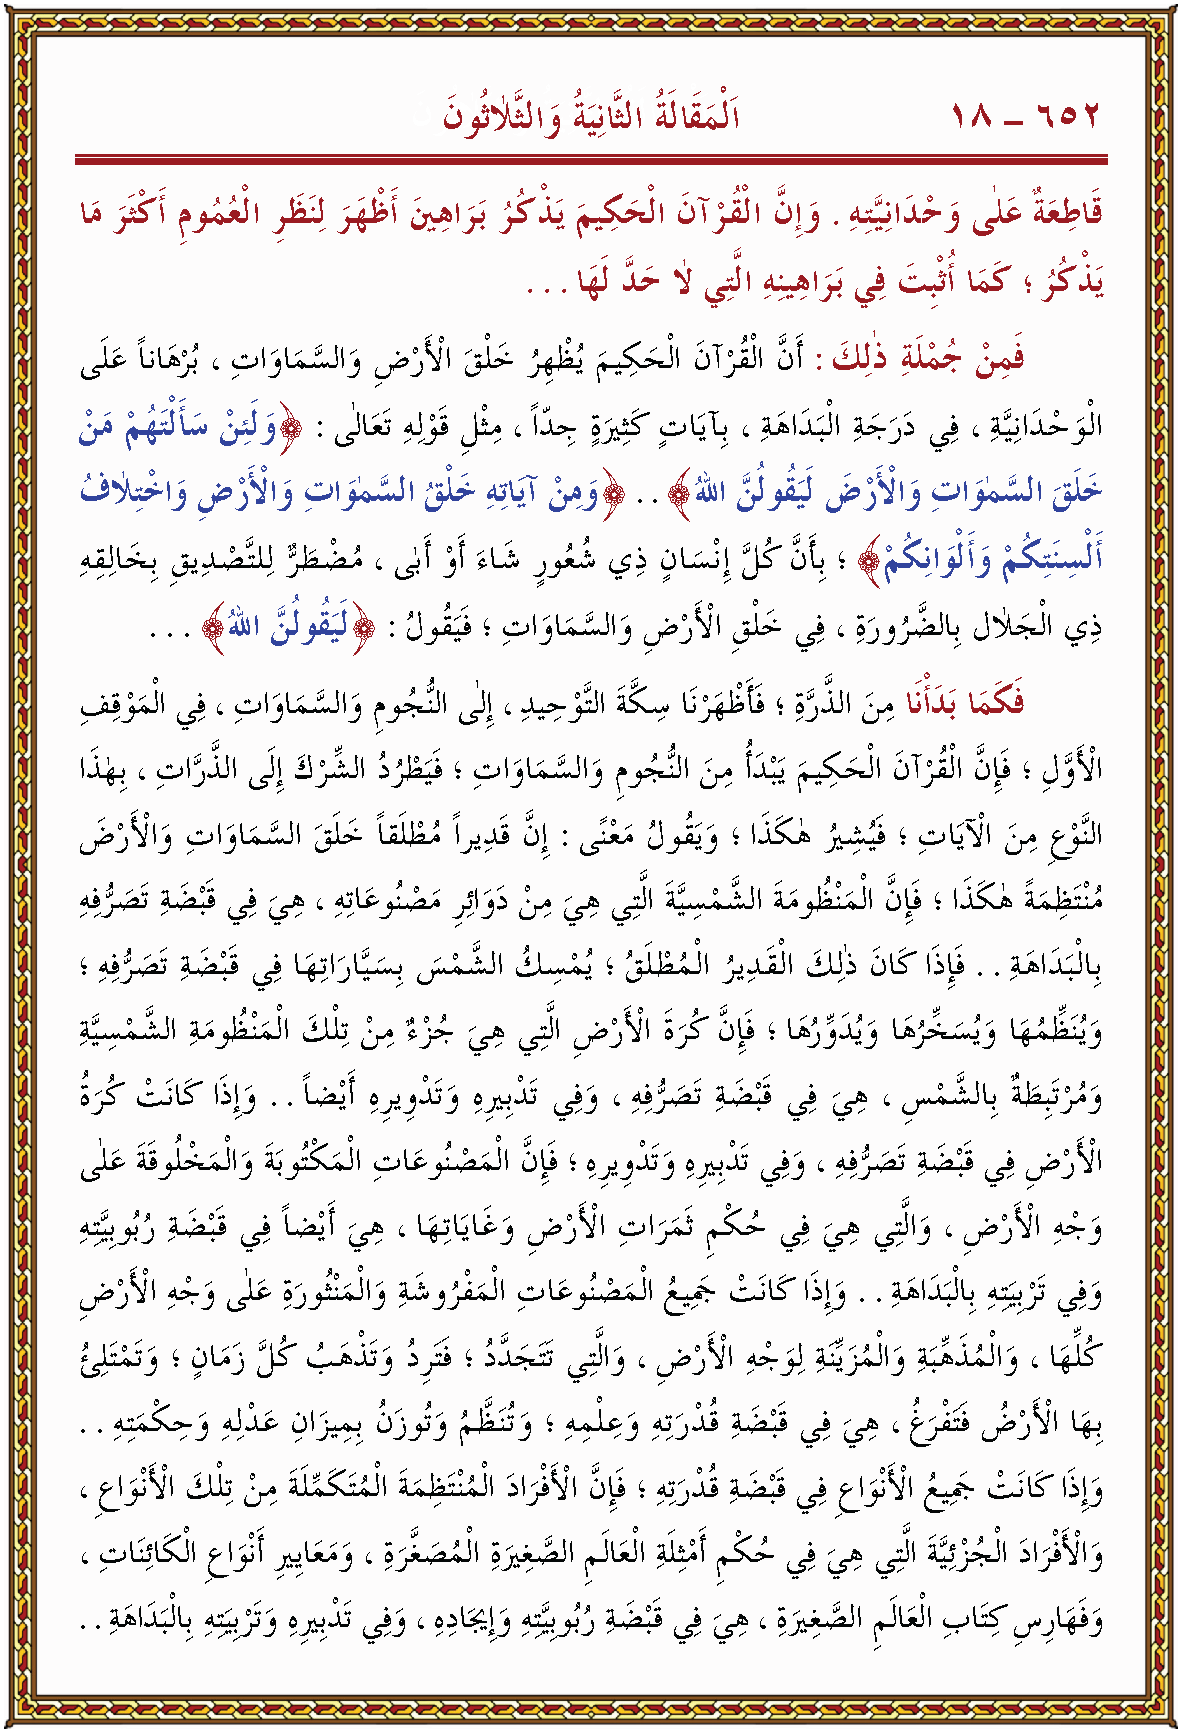 ٦٥٢ – ١٨ اَلْمَقَالَةُ الثَّانِيَةُ وَالثَّلَاثُونَ
قَاطِعَةٌ عَلٰى وَحْدَانِيَّتِهِ . وَإِنَّ الْقُرْآنَ الْحَكِيمَ يَذْكُرُ بَرَاهِينَ أَظْهَرَ لِنَظَرِ الْعُمُومِ أَكْثَرَ مَا
يَذْكُرُ ؛ كَمَا أُثْبِتَ فِي بَرَاهِينِهِ الَّتِي لَا حَدَّ لَهَا . . .
فَمِنْ جُمْلَةِ ذٰلِكَ : أَنَّ الْقُرْآنَ الْحَكِيمَ يُظْهِرُ خَلْقَ الْأَرْضِ وَالسَّمَاوَاتِ ، بُرْهَاناً عَلَى
الْوَحْدَانِيَّةِ ، فِي دَرَجَةِ الْبَدَاهَةِ ، بِآيَاتٍ كَثِيرَةٍ جِدّاً ، مِثْلِ قَوْلِهِ تَعَالٰى : ﴿وَلَئِنْ سَأَلْتَهُمْ مَنْ
خَلَقَ السَّمٰوَاتِ وَالْأَرْضَ لَيَقُولُنَّ اللهُ﴾ . . ﴿وَمِنْ آيَاتِهِ خَلْقُ السَّمٰوَاتِ وَالْأَرْضِ وَاخْتِلَافُ
أَلْسِنَتِكُمْ وَأَلْوَانِكُمْ﴾ ؛ بِأَنَّ كُلَّ إِنْسَانٍ ذِي شُعُورٍ شَاءَ أَوْ أَبٰى ، مُضْطَرٌّ لِلتَّصْدِيقِ بِخَالِقِهِ
ذِي الْجَلَالِ بِالضَّرُورَةِ ، فِي خَلْقِ الْأَرْضِ وَالسَّمَاوَاتِ ؛ فَيَقُولُ : ﴿لَيَقُولُنَّ اللهُ﴾ . . .
فَكَمَا بَدَأْنَا مِنَ الذَّرَّةِ ؛ فَأَظْهَرْنَا سِكَّةَ التَّوْحِيدِ ، إِلَى النُّجُومِ وَالسَّمَاوَاتِ ، فِي الْمَوْقِفِ
الْأَوَّلِ ؛ فَإِنَّ الْقُرْآنَ الْحَكِيمَ يَبْدَأُ مِنَ النُّجُومِ وَالسَّمَاوَاتِ ؛ فَيَطْرُدُ الشِّرْكَ إِلَى الذَّرَّاتِ ، بِهٰذَا
النَّوْعِ مِنَ الْآيَاتِ ؛ فَيُشِيرُ هٰكَذَا ؛ وَيَقُولُ مَعْنًى : إِنَّ قَدِيراً مُطْلَقاً خَلَقَ السَّمَاوَاتِ وَالْأَرْضَ
مُنْتَظِمَةً هٰكَذَا ؛ فَإِنَّ الْمَنْظُومَةَ الشَّمْسِيَّةَ الَّتِي هِيَ مِنْ دَوَائِرِ مَصْنُوعَاتِهِ ، هِيَ فِي قَبْضَةِ تَصَرُّفِهِ
بِالْبَدَاهَةِ . . فَإِذَا كَانَ ذٰلِكَ الْقَدِيرُ الْمُطْلَقُ ؛ يُمْسِكُ الشَّمْسَ بِسَيَّارَاتِهَا فِي قَبْضَةِ تَصَرُّفِهِ ؛
وَيُنَظِّمُهَا وَيُسَخِّرُهَا وَيُدَوِّرُهَا ؛ فَإِنَّ كُرَةَ الْأَرْضِ الَّتِي هِيَ جُزْءٌ مِنْ تِلْكَ الْمَنْظُومَةِ الشَّمْسِيَّةِ
وَمُرْتَبِطَةٌ بِالشَّمْسِ ، هِيَ فِي قَبْضَةِ تَصَرُّفِهِ ، وَفِي تَدْبِيرِهِ وَتَدْوِيرِهِ أَيْضاً . . وَإِذَا كَانَتْ كُرَةُ
الْأَرْضِ فِي قَبْضَةِ تَصَرُّفِهِ ، وَفِي تَدْبِيرِهِ وَتَدْوِيرِهِ ؛ فَإِنَّ الْمَصْنُوعَاتِ الْمَكْتُوبَةَ وَالْمَخْلُوقَةَ عَلٰى
وَجْهِ الْأَرْضِ ، وَالَّتِي هِيَ فِي حُكْمِ ثَمَرَاتِ الْأَرْضِ وَغَايَاتِهَا ، هِيَ أَيْضاً فِي قَبْضَةِ رُبُوبِيَّتِهِ
وَفِي تَرْبِيَتِهِ بِالْبَدَاهَةِ . . وَإِذَا كَانَتْ جَمِيعُ الْمَصْنُوعَاتِ الْمَفْرُوشَةِ وَالْمَنْثُورَةِ عَلٰى وَجْهِ الْأَرْضِ
كُلِّهَا ، وَالْمُذَهِّبَةِ وَالْمُزَيِّنَةِ لِوَجْهِ الْأَرْضِ ، وَالَّتِي تَتَجَدَّدُ ؛ فَتَرِدُ وَتَذْهَبُ كُلَّ زَمَانٍ ؛ وَتَمْتَلِئُ
بِهَا الْأَرْضُ فَتَفْرَغُ ، هِيَ فِي قَبْضَةِ قُدْرَتِهِ وَعِلْمِهِ ؛ وَتُنَظَّمُ وَتُوزَنُ بِمِيزَانِ عَدْلِهِ وَحِكْمَتِهِ . .
وَإِذَا كَانَتْ جَمِيعُ الْأَنْوَاعِ فِي قَبْضَةِ قُدْرَتِهِ ؛ فَإِنَّ الْأَفْرَادَ الْمُنْتَظِمَةَ الْمُتَكَمِّلَةَ مِنْ تِلْكَ الْأَنْوَاعِ ،
وَالْأَفْرَادَ الْجُزْئِيَّةَ الَّتِي هِيَ فِي حُكْمِ أَمْثِلَةِ الْعَالَمِ الصَّغِيرَةِ الْمُصَغَّرَةِ ، وَمَعَايِيرِ أَنْوَاعِ الْكَائِنَاتِ ،
وَفَهَارِسِ كِتَابِ الْعَالَمِ الصَّغِيرَةِ ، هِيَ فِي قَبْضَةِ رُبُوبِيَّتِهِ وَإِيجَادِهِ ، وَفِي تَدْبِيرِهِ وَتَرْبِيَتِهِ بِالْبَدَاهَةِ . .